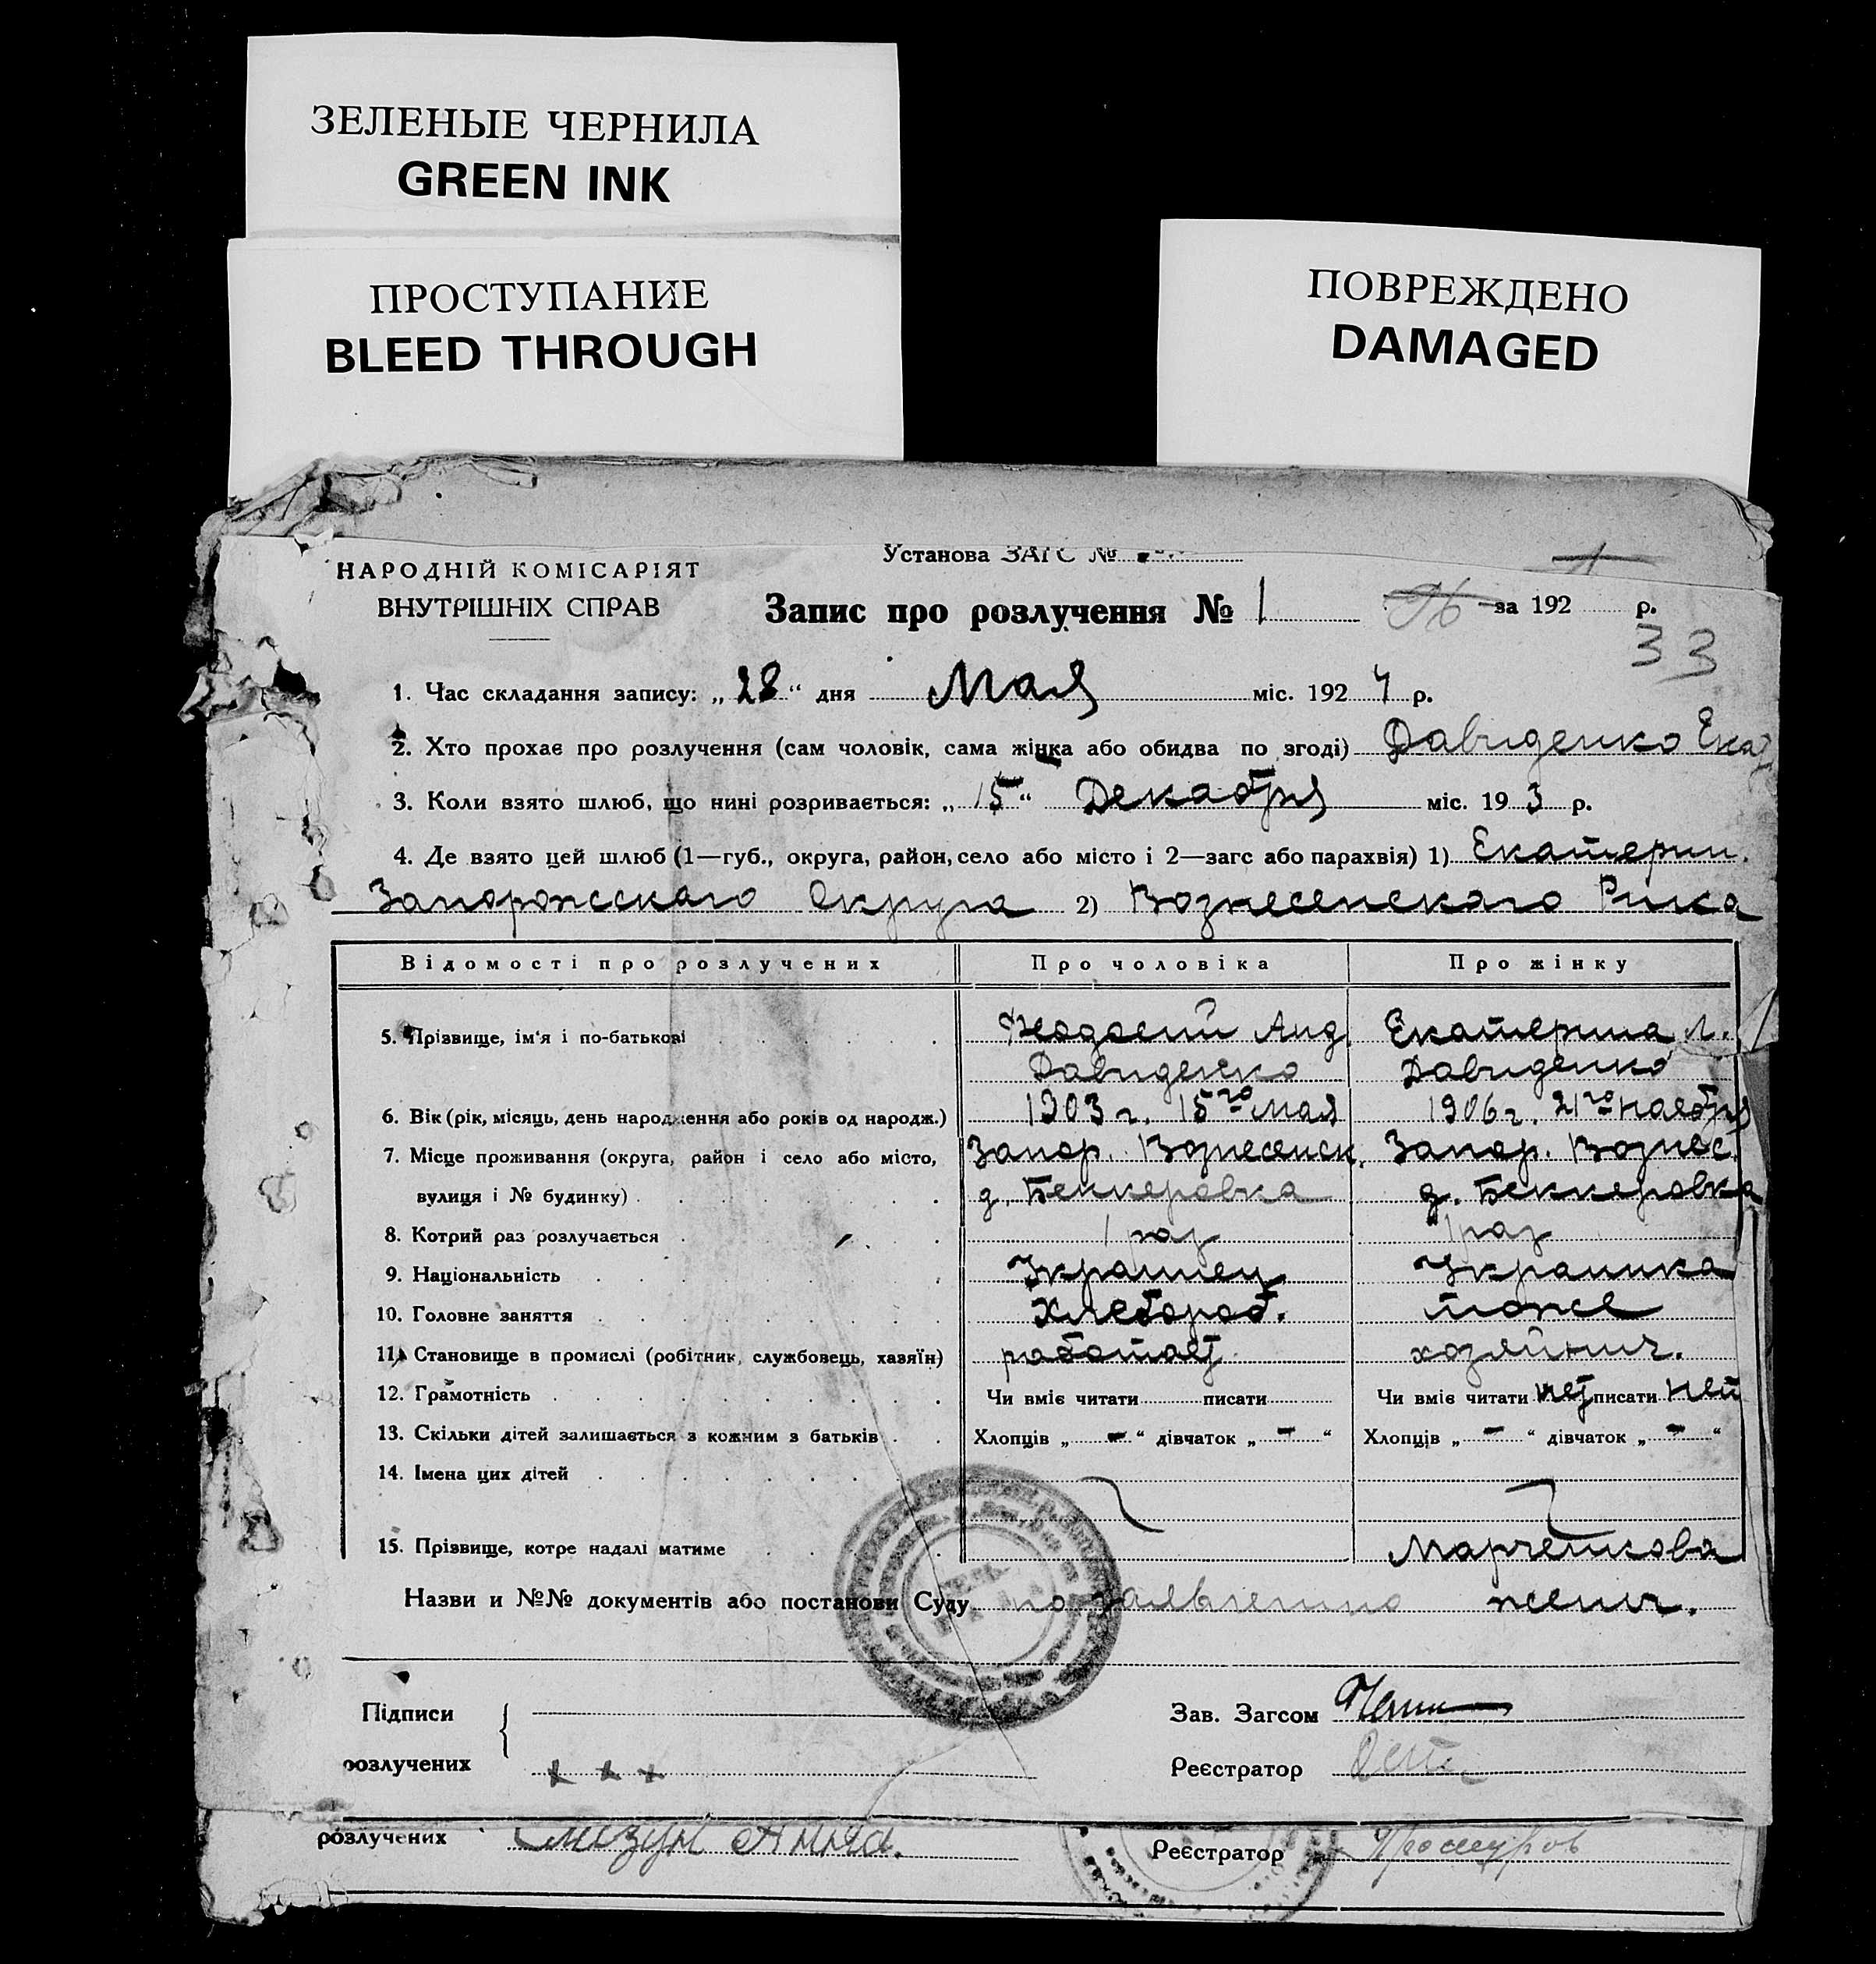 ЗЕЛЕНЫЕ ЧЕРНИЛА
GREEN INK
ПРОСТУПАНИЕ
BLEED THROUGH
ПОВРЕЖДЕНО
DAMAGED
Установа ЗАГС №
НАРОДНІЙ КОМІСАРІЯТ
ВНУТРІШНІХ СПРАВ
Запис про розлучення № 1 за 192 р.
33
1. Час складання запису: „28“ дня Мая міс. 1924 р.
2. Хто прохає про розлучення (сам чоловік, сама жінка або обидва по згоді) Давиденко Ека
3. Коли взято шлюб, що нині розривається: „15“ Декабря міс. 193 р.
4. Де взято цей шлюб (1—губ., округа, район, село або місто і 2—загс або парахвія) 1) Екатерин.
Запорожсскаго Округа 2) Вознесенскаго Рика
Відомості про розлучених Про чоловіка Про жінку
5. Прізвище, ім'я і по-батькові Феодосий Анд. Екатерина Л.
Давиденко Давиденко
6. Вік (рік, місяць, день народження або років од народж.) 1903 г. 15го мая 1906 г. 21го ноября
7. Місце проживання (округа, район і село або місто, Запор. Вознесенск. Запор. Вознес.
вулиця і № будинку) д. Беккеровка д. Беккеровка
8. Котрий раз розлучається 1 раз 1 раз
9. Національність Украинец Украинка
10. Головне заняття Хлебороб. тоже
11. Становище в промислі (робітник, службовець, хазяїн) работает хозяйнич.
12. Грамотність Чи вміє читати писати Чи вміє читати нет писати нет
13. Скільки дітей залишається з кожним з батьків Хлопців „ – “ дівчаток „ – “ Хлопців „ – “ дівчаток „ – “
14. Імена цих дітей
15. Прізвище, котре надалі матиме Марченкова
Назви и №№ документів або постанови Суду по заявлению жени.
Підписи Зав. Загсом
розлучених х х х Реєстратор
розлучених Мізун Анна. Реєстратор